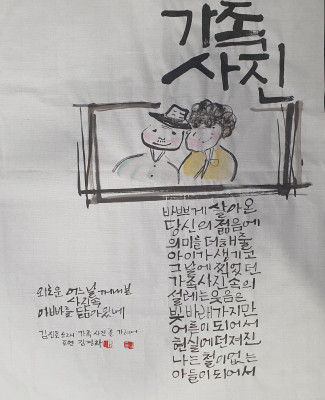 가족
사진
바쁘게 살아온
당신의 젊음에
의미를 더해줄
아이가 생기고
그날에 찍었던
가족사진 속의
설레는 웃음은
빛바래가지만
어른이 되어서
현실에 던져진
나는 철이없는
아들이 되어서
외로운 어느날 꺼내본
사진속
아빠를 닮아있네
김진호 노래 가족사진을